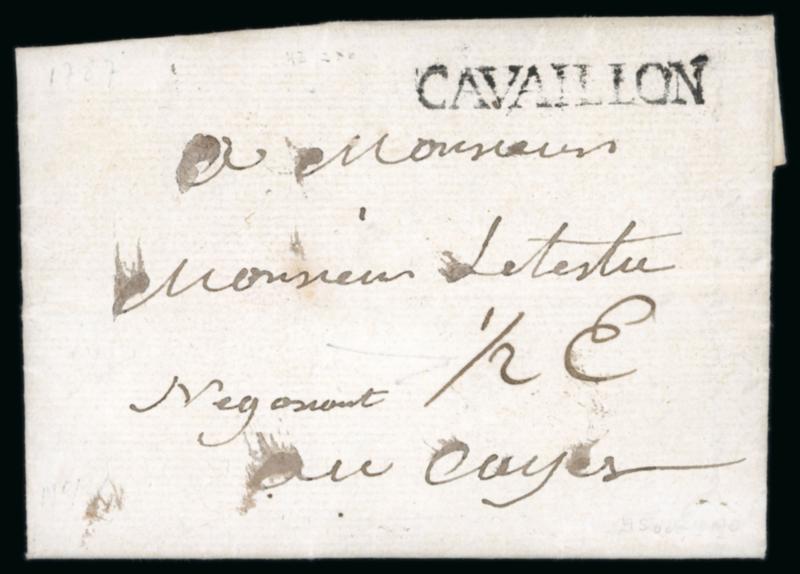 1787
CAVAILLON
a Monsieur
Monsieur Letestu
1/2 E
Negosiant
au Cayes